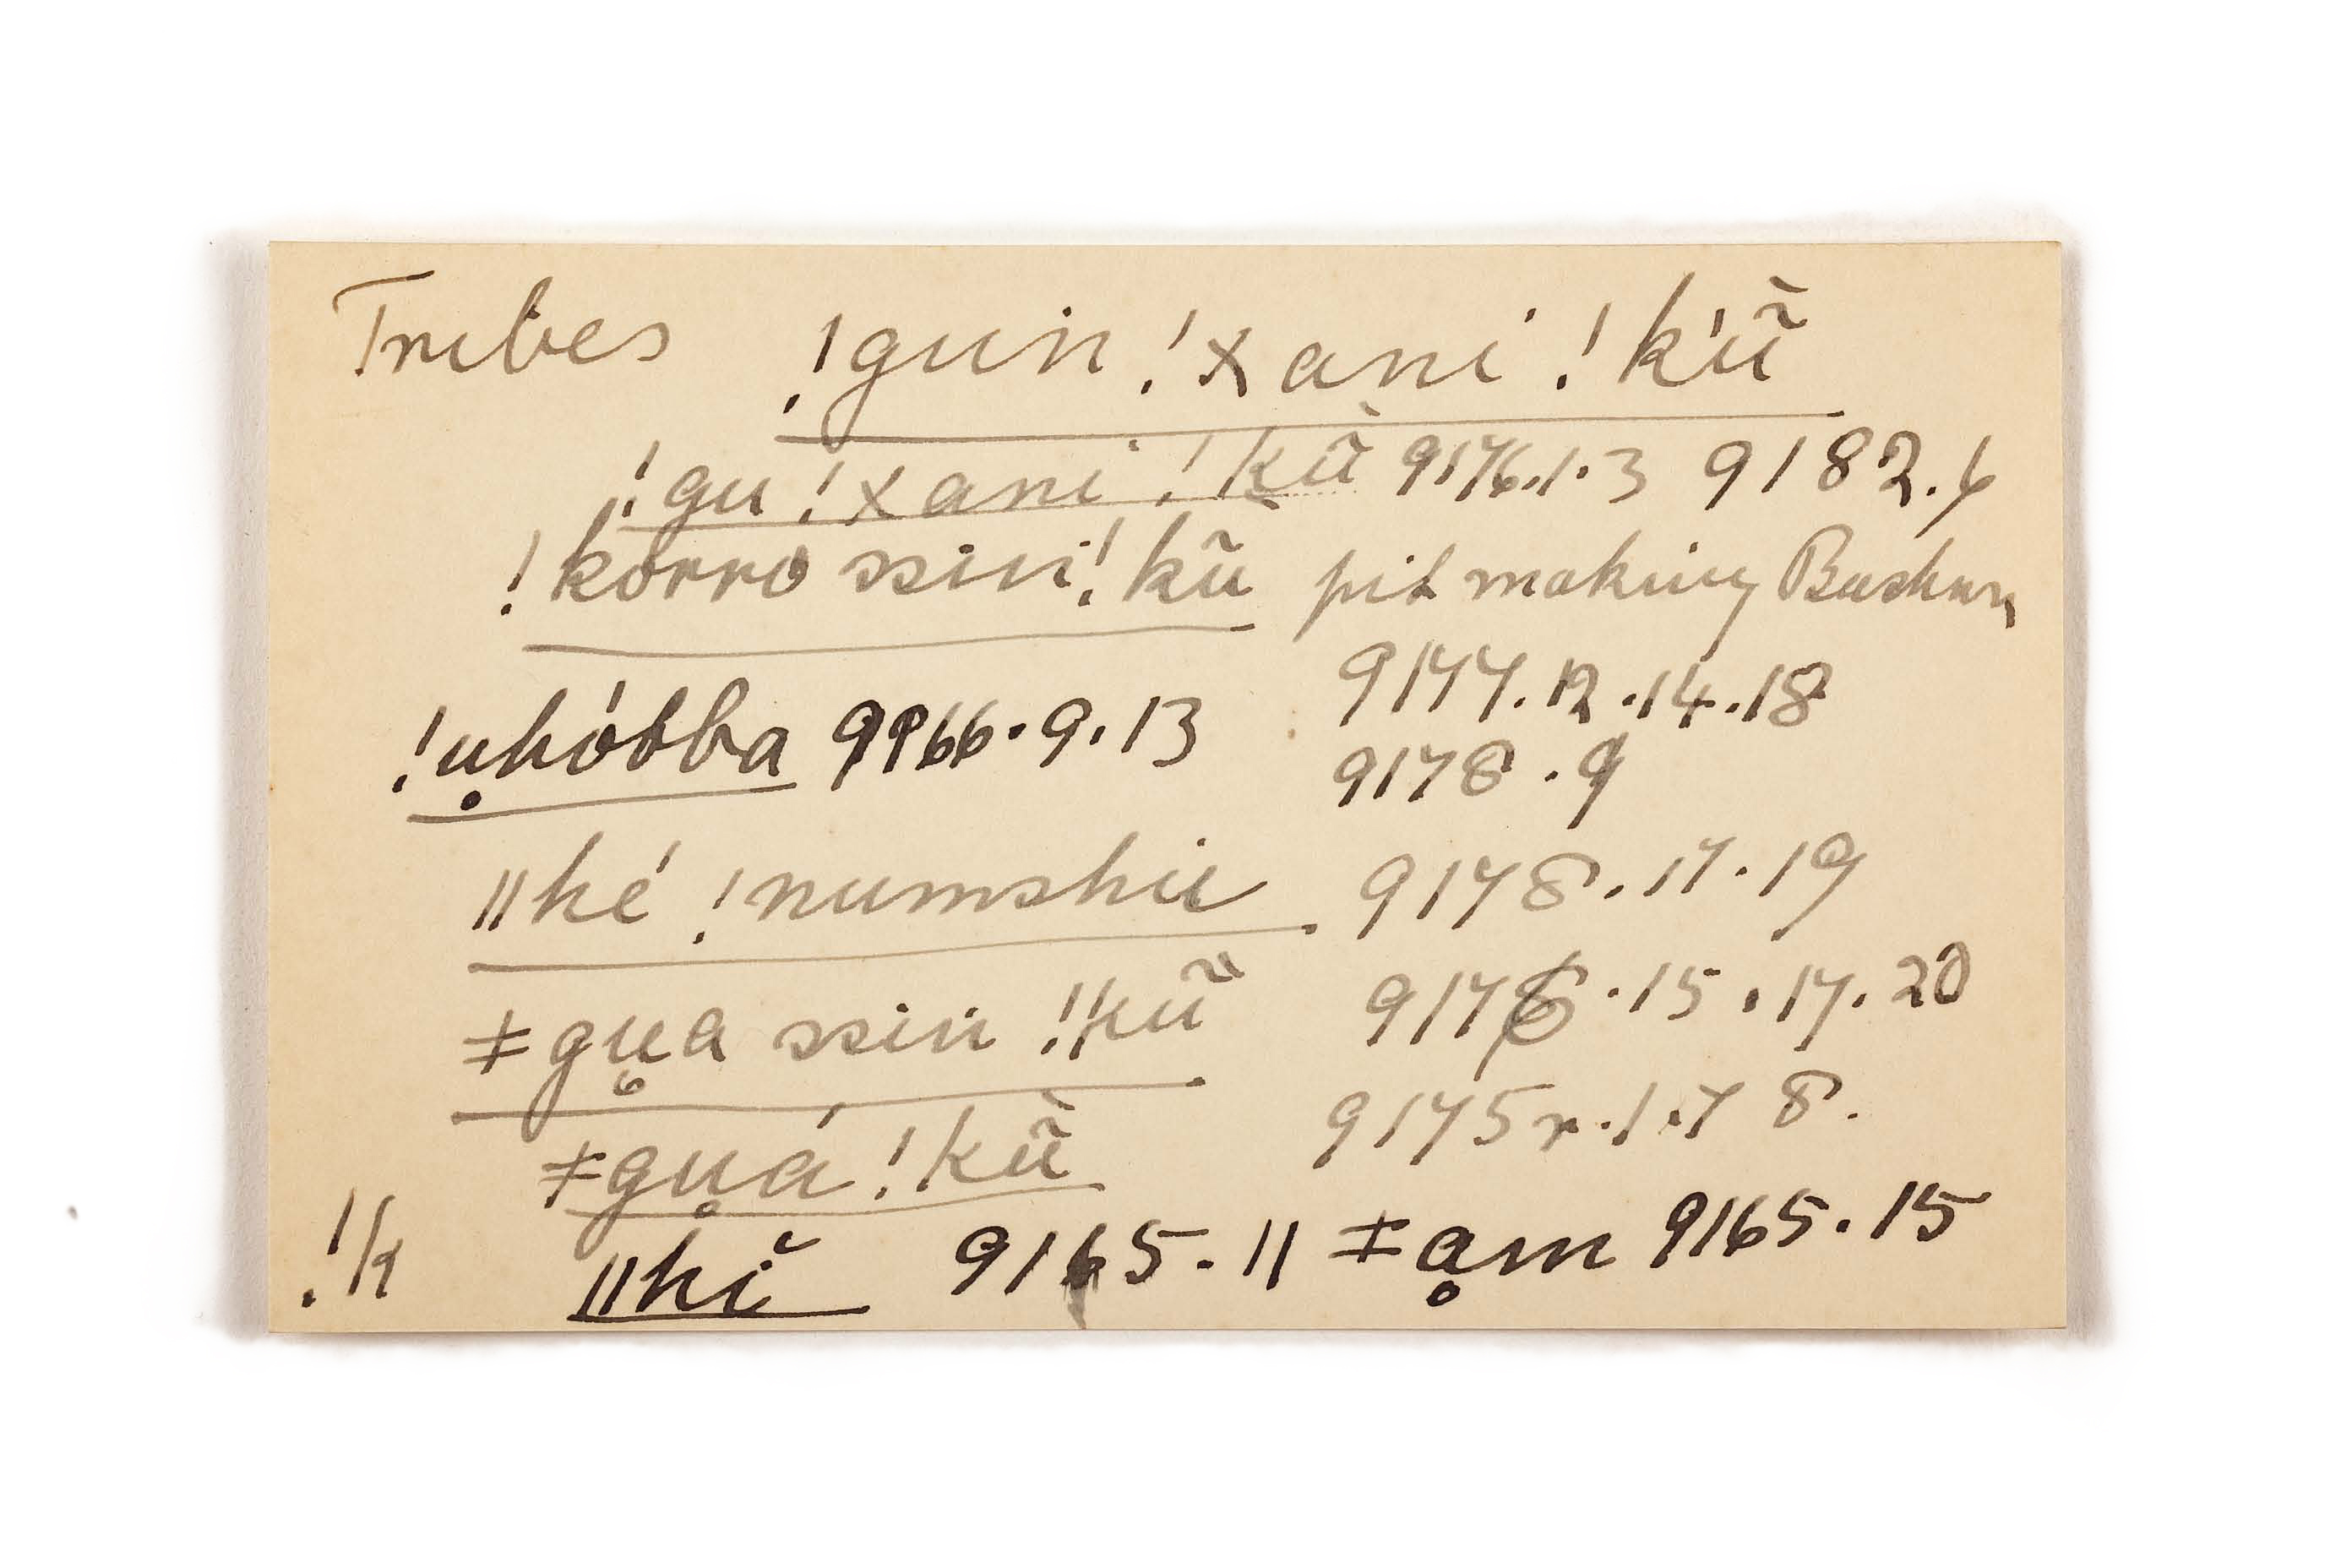 Tribes !gun !xani !kũ
!gu !xani !kũ 9176.1.3 9182.6
!korro ssin !kũ pit making Bushmn
9177.12.14.18
!u̥hóbba 9166.9.13
9178.9
ǁhé !numshu 9178.17.19
ǂgu̥a ssin !kũ 9176.15.17.20
9175r.1.7 8.
ǂgu̥á !kũ
!k ǁhĭ 9165.11 ǂḁm 9165.15